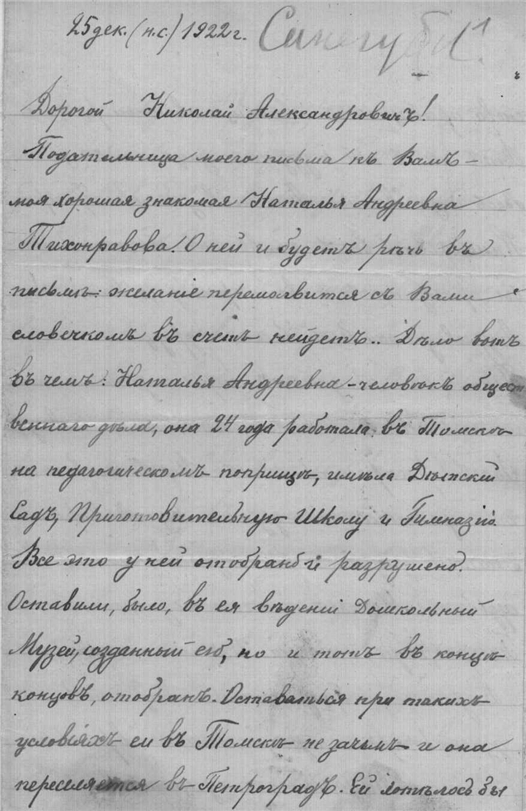 25 дек. (н.с.) 1922 г.
Дорогой Николай Александровичъ!
Подательница моего письма къ Вамъ –
моя хорошая знакомая Наталья Андреевна
Тихонравова. О ней и будетъ рѣчь въ
письмѣ: желаніе перемолвится съ Вами
словечкомъ въ счетъ нейдетъ.. Дѣло вотъ
въ чемъ: Наталья Андреевна – человѣкъ общест
веннаго дѣла, она 24 года работала въ Томскѣ
на педагогическомъ поприщѣ, имѣла Дѣтскій
Садъ, Приготовительную Школу и Гимназію.
Все это у ней отобрано и разрушено.
Оставили, было, въ ея вѣденіи Дошкольный
Музей, созданный ею, но и тотъ въ концѣ
концовъ, отобранъ. Оставаться при такихъ
условіяхъ ей въ Томскѣ не зачѣмъ и она
переселяется въ Петроградъ. Ей хотѣлось бы